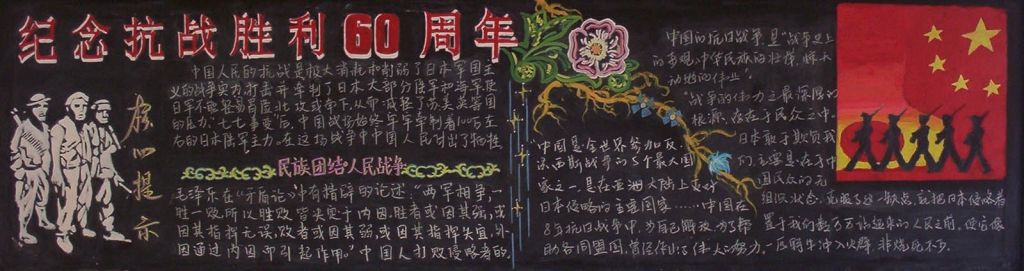 纪念抗战胜利60周年
中国人民的抗战是极大消耗和削弱了日本军国主
义的战争实力,打击并牵制了日本大部分陆军和海军使
日军不能轻易
的压力.七七事变后,中国战场始终牢牢牵制着100万左
右的日本陆军主力.在这场战争中中国人民付出了牺牲
核心提示
民族团结人民战争
毛泽东在“矛盾论”中有精辟的论述“两军相争,一
胜一败,所以胜败,皆决定于内因,胜者或因其强,或
因其指挥无误,败者或因其弱,或因其指挥失宜,外
因通过内因而引起作用。”中国人打败侵略者的
中国的抗日战争是“战争史上
的奇观,中华民族的壮举,惊天
动地的伟业”
“战争的伟力之最深厚的
根源,存在于民众之中
日本敢于欺负我
们,主要是在于中
国民众的无
组织状态,克服了这一缺点,就把日本侵略者
置于我们数万万站起来的人民之前,使它像
一匹野牛冲入火阵,
中国是全世界参加反
法西斯战争的5个最大国
家之一,是在亚洲大陆上反对
日本侵略的主要国家……中国在
8年抗日战争中,为自己解放,为了帮
助各同盟国,曾经作了伟大的努力,